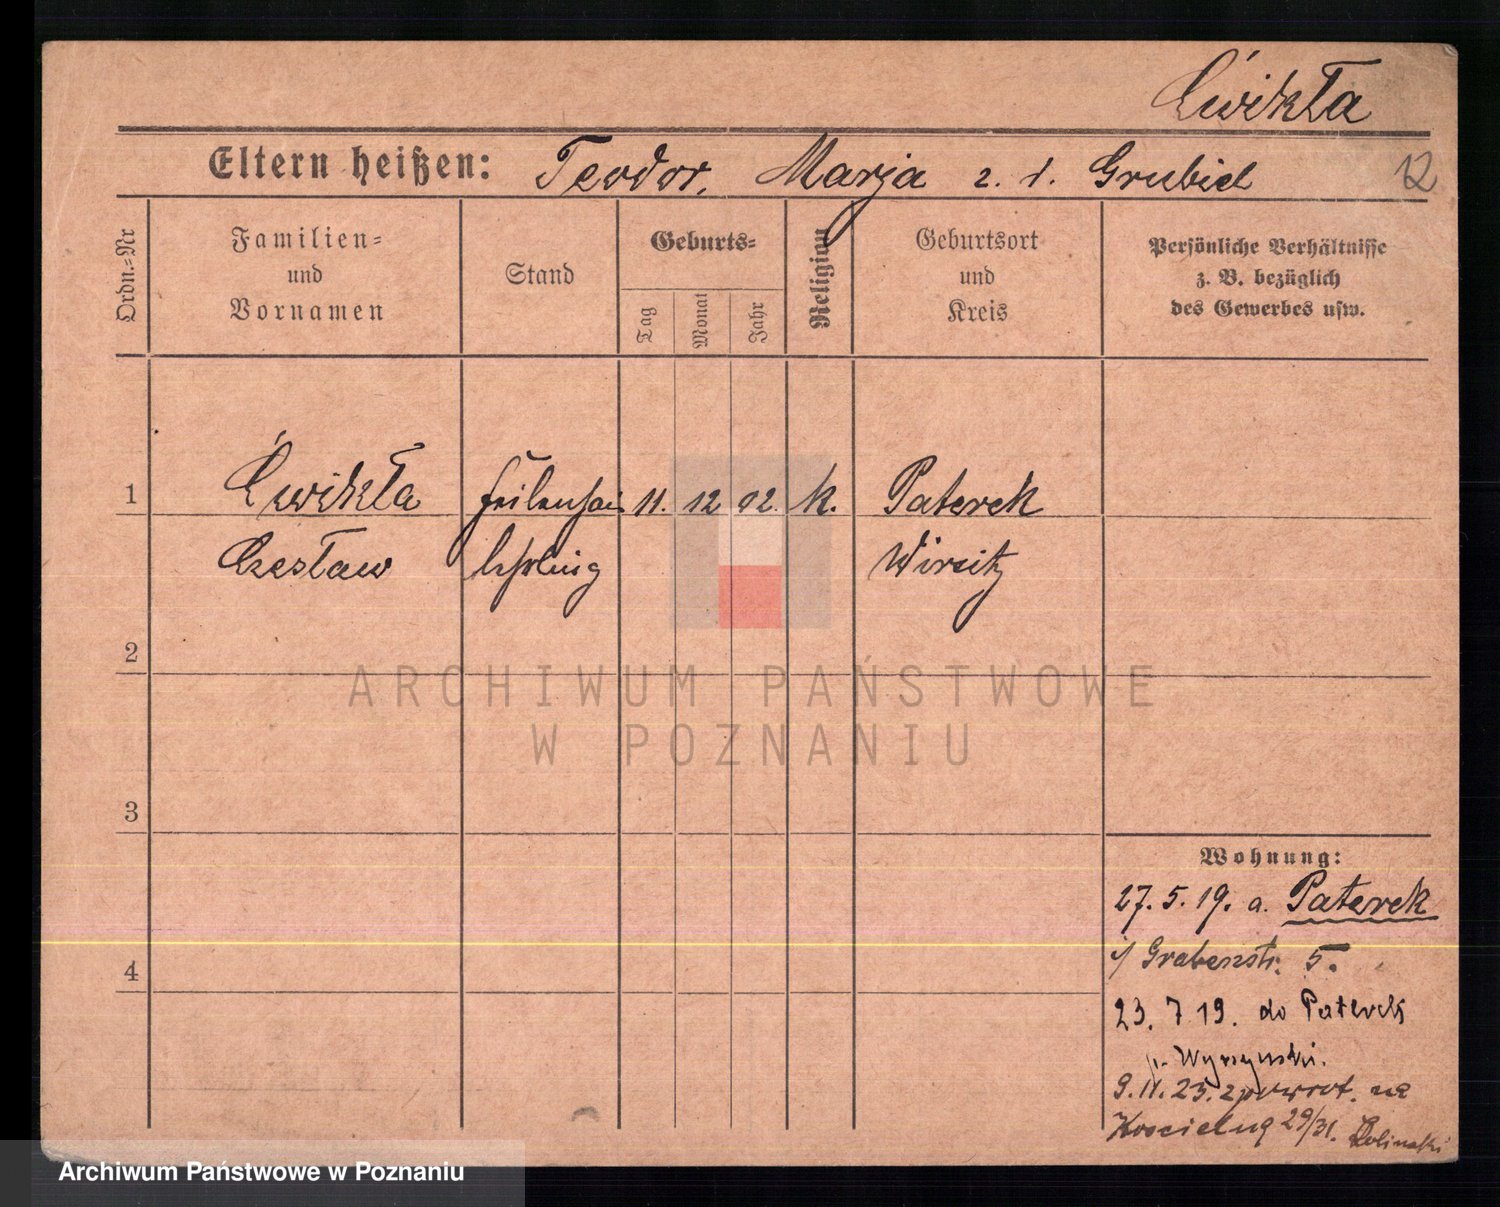 Ćwikła
Eltern heißen: Teodor, Marja z. d. Grubich
12
Ordn.=Nr
Familien=
und
Vornamen
Stand
Geburts=
Tag
Monat
Jahr
Religion
Geburtsort
und
Kreis
Persönliche Verhältnisse
z. B. bezüglich
des Gewerbes usw.
1 Ćwikła 11. 12 02. k. Paterek
Czesław Wirsitz
2
ARCHIWUM PAŃSTWOWE
W POZNANIU
3
Wohnung:
27. 5. 19. a. Paterek
Grabenstr. 5.
4
23. 7 19. do Paterek
p. Wyrzyski.
9. 11. 23. zpowrot. na
Kościelną 29/31. Lolinski
Archiwum Państwowe w Poznaniu